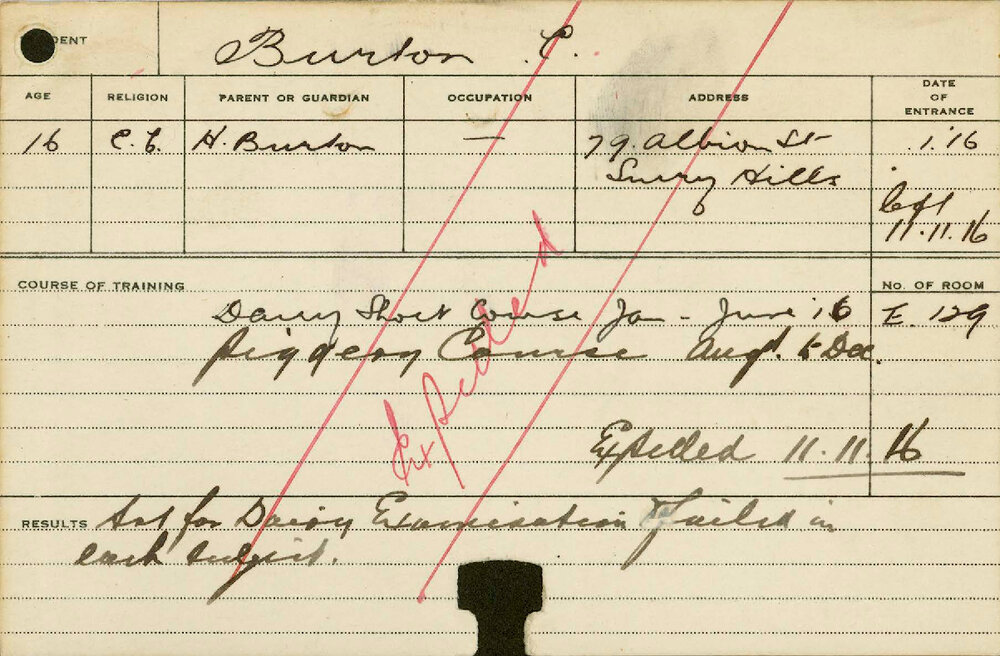 DENT Burton C.
AGE RELIGION PARENT OR GUARDIAN OCCUPATION ADDRESS DATE OF ENTRANCE
16 C.E. H. Burton — 79. Albion St 1.16
Surry Hills
left
11.11.16
COURSE OF TRAINING No. OF ROOM
Dairy Short Course Jan - June 16 E. 129
Piggery Course Augt to Dec.
Expelled
Expelled 11.11.16
RESULTS Sat for Dairy Examination & failed in
each subject.